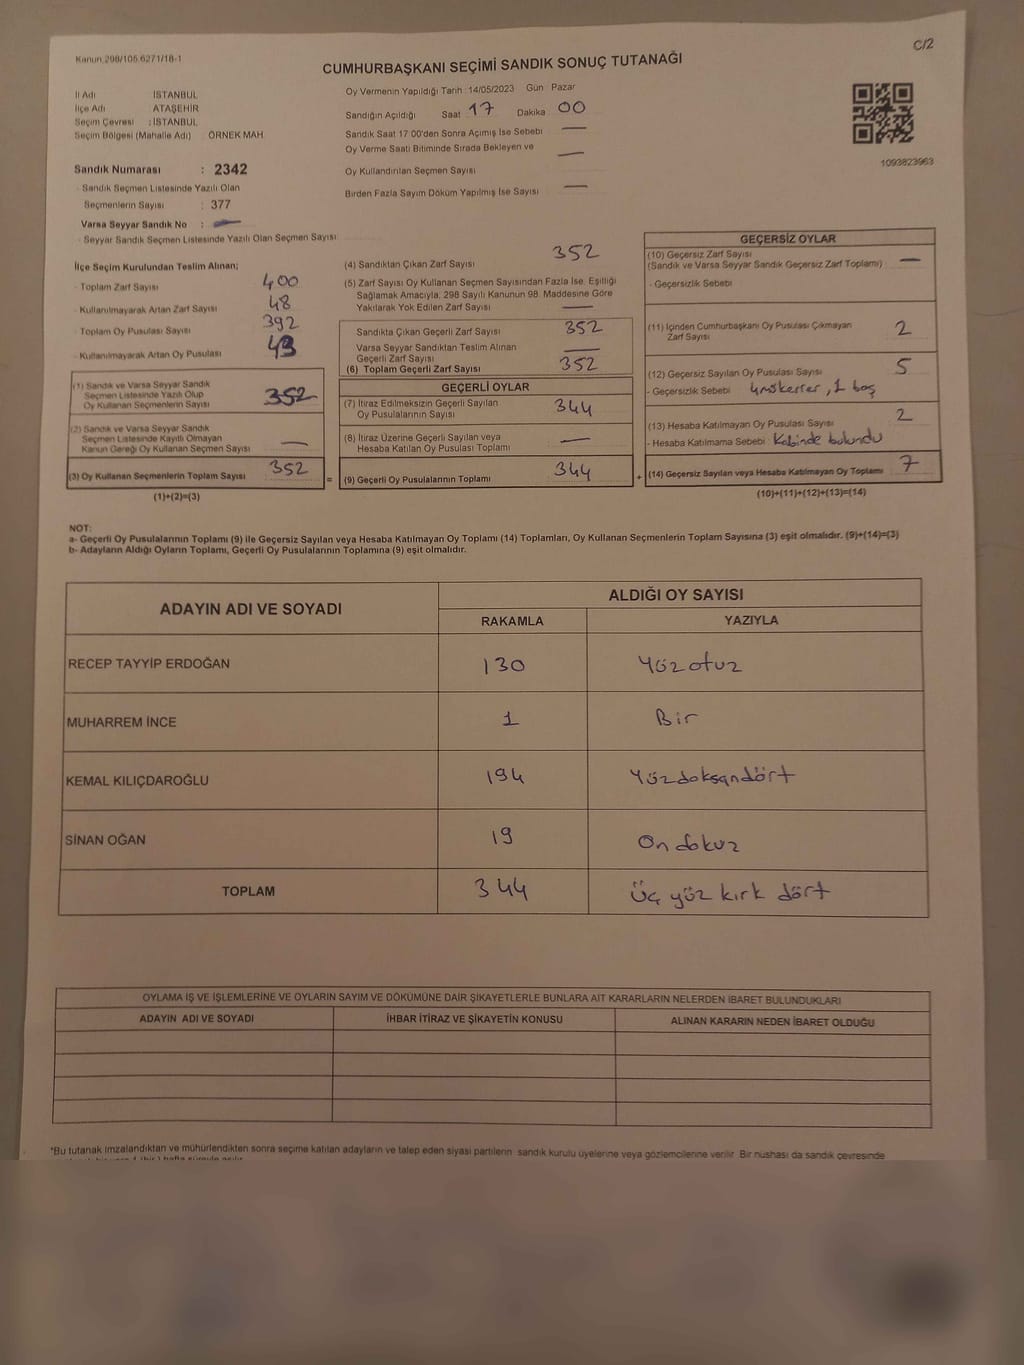 C/2
Kanun 298/105.6271/18-1
CUMHURBAŞKANI SEÇİMİ SANDIK SONUÇ TUTANAĞI
İl Adı İSTANBUL
İlçe Adı ATAŞEHİR
Seçim Çevresi : İSTANBUL
Seçim Bölgesi (Mahalle Adı) ÖRNEK MAH
Sandık Numarası : 2342
- Sandık Seçmen Listesinde Yazılı Olan
Seçmenlerin Sayısı : 377
Varsa Seyyar Sandık No : —
- Seyyar Sandık Seçmen Listesinde Yazılı Olan Seçmen Sayısı
Oy Vermenin Yapıldığı Tarih : 14/05/2023 Gün Pazar
Sandığın Açıldığı Saat : 17 Dakika 00
Sandık Saat 17:00'den Sonra Açımış İse Sebebi —
Oy Verme Saati Bitiminde Sırada Bekleyen ve —
Oy Kullandırılan Seçmen Sayısı
Birden Fazla Sayım Döküm Yapılmış İse Sayısı —
1093823963
İlçe Seçim Kurulundan Teslim Alınan;
- Toplam Zarf Sayısı 400
- Kullanılmayarak Artan Zarf Sayısı 48
- Toplam Oy Pusulası Sayısı 392
- Kullanılmayarak Artan Oy Pusulası
(1) Sandık ve Varsa Seyyar Sandık
Seçmen Listesinde Yazılı Olup
Oy Kullanan Seçmenlerin Sayısı 352
(2) Sandık ve Varsa Seyyar Sandık
Seçmen Listesinde Kayıtlı Olmayan
Kanun Gereği Oy Kullanan Seçmen Sayısı —
(3) Oy Kullanan Seçmenlerin Toplam Sayısı 352
(1)+(2)=(3)
(4) Sandıktan Çıkan Zarf Sayısı 352
(5) Zarf Sayısı Oy Kullanan Seçmen Sayısından Fazla İse, Eşitliği
Sağlamak Amacıyla, 298 Sayılı Kanunun 98. Maddesine Göre
Yakılarak Yok Edilen Zarf Sayısı —
Sandıkta Çıkan Geçerli Zarf Sayısı 352
Varsa Seyyar Sandıktan Teslim Alınan
Geçerli Zarf Sayısı —
(6) Toplam Geçerli Zarf Sayısı 352
GEÇERLİ OYLAR
(7) İtiraz Edilmeksizin Geçerli Sayılan
Oy Pusulalarının Sayısı 344
(8) İtiraz Üzerine Geçerli Sayılan veya
Hesaba Katılan Oy Pusulası Toplamı —
= (9) Geçerli Oy Pusulalarının Toplamı 344
GEÇERSİZ OYLAR
(10) Geçersiz Zarf Sayısı
(Sandık ve Varsa Seyyar Sandık Geçersiz Zarf Toplamı) —
- Geçersizlik Sebebi
(11) İçinden Cumhurbaşkanı Oy Pusulası Çıkmayan
Zarf Sayısı 2
(12) Geçersiz Sayılan Oy Pusulası Sayısı 5
- Geçersizlik Sebebi 4 , 1 boş
(13) Hesaba Katılmayan Oy Pusulası Sayısı 2
- Hesaba Katılmama Sebebi Kabinde bulundu
+ (14) Geçersiz Sayılan veya Hesaba Katılmayan Oy Toplamı 7
(10)+(11)+(12)+(13)=(14)
NOT:
a- Geçerli Oy Pusulalarının Toplamı (9) ile Geçersiz Sayılan veya Hesaba Katılmayan Oy Toplamı (14) Toplamları, Oy Kullanan Seçmenlerin Toplam Sayısına (3) eşit olmalıdır. (9)+(14)=(3)
b- Adayların Aldığı Oyların Toplamı, Geçerli Oy Pusulalarının Toplamına (9) eşit olmalıdır.
ADAYIN ADI VE SOYADI ALDIĞI OY SAYISI
RAKAMLA YAZIYLA
RECEP TAYYİP ERDOĞAN 130 Yüz otuz
MUHARREM İNCE 1 Bir
KEMAL KILIÇDAROĞLU 194 Yüzdoksandört
SİNAN OĞAN 19 On dokuz
TOPLAM 344 Üç yüz kırk dört
OYLAMA İŞ VE İŞLEMLERİNE VE OYLARIN SAYIM VE DÖKÜMÜNE DAİR ŞİKAYETLERLE BUNLARA AİT KARARLARIN NELERDEN İBARET BULUNDUKLARI
ADAYIN ADI VE SOYADI İHBAR İTİRAZ VE ŞİKAYETİN KONUSU ALINAN KARARIN NEDEN İBARET OLDUĞU
*Bu tutanak imzalandıktan ve mühürlendikten sonra seçime katılan adayların ve talep eden siyasi partilerin sandık kurulu üyelerine veya gözlemcilerine verilir. Bir nüshası da sandık çevresinde